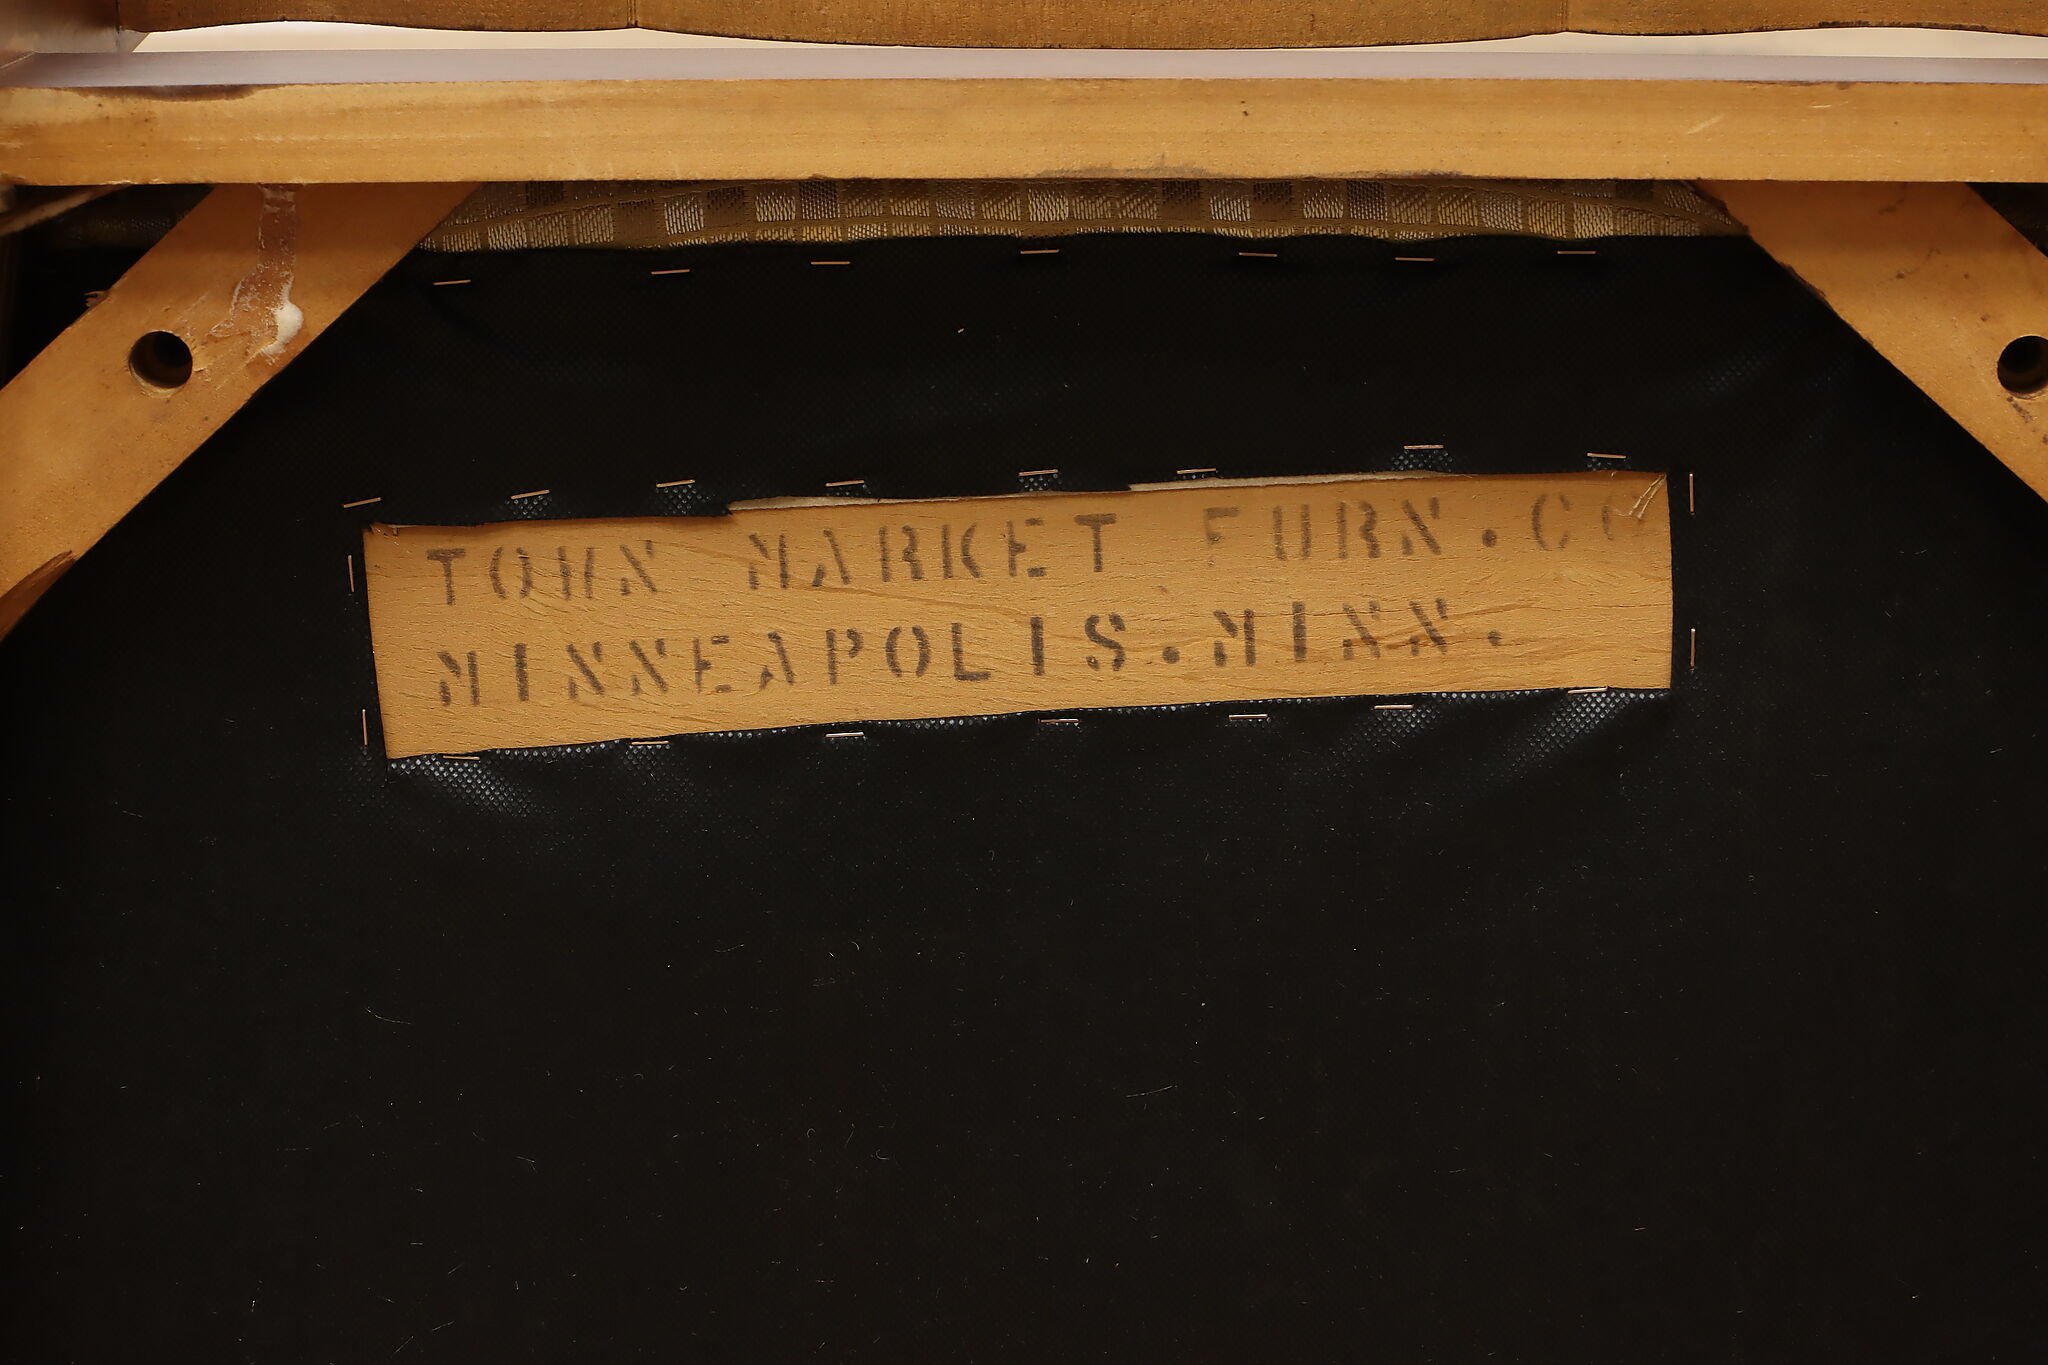 TOWN MARKET FURN. CO
MINNEAPOLIS. MINN.